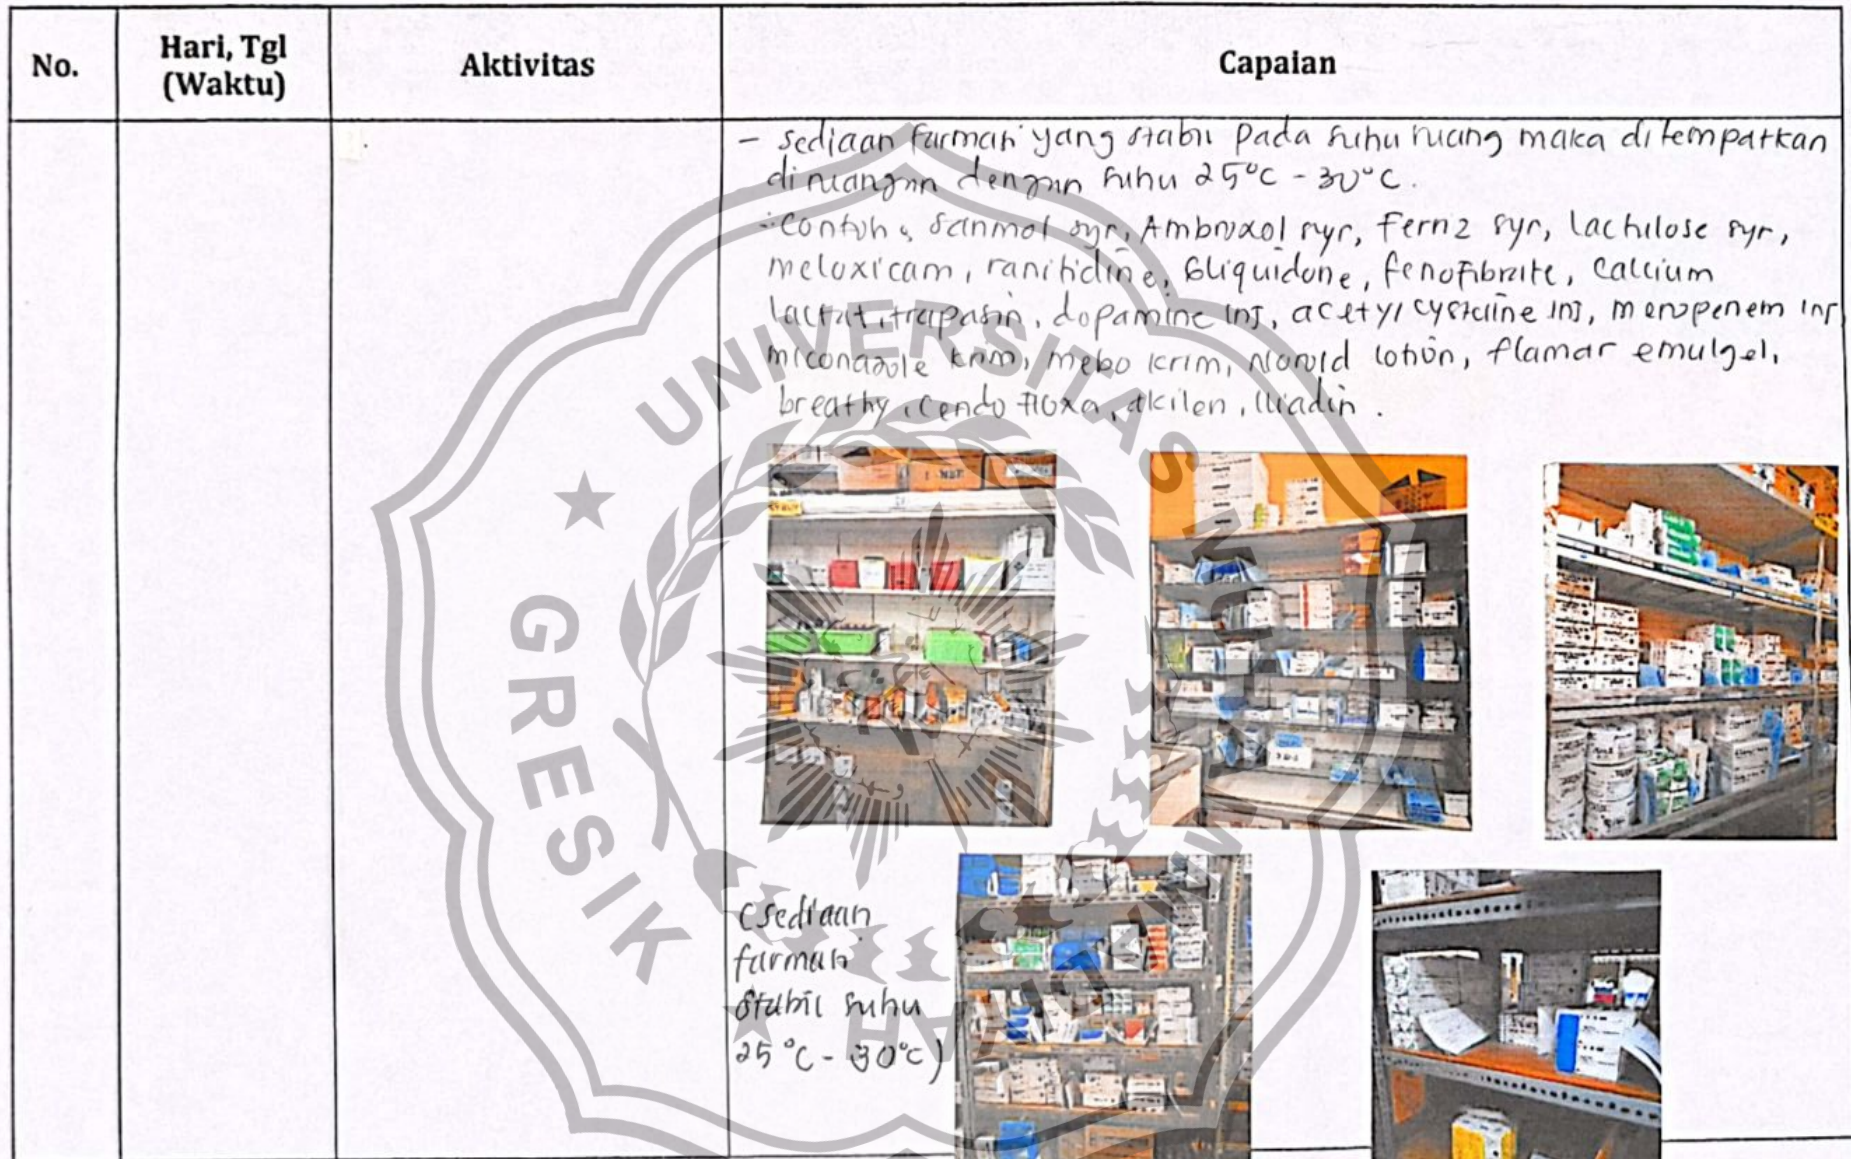 No.
Hari, Tgl
(Waktu)
Aktivitas
Capaian
- sediaan farmasi yang stabil pada suhu ruang maka ditempatkan
diruangan dengan suhu 25°C - 30°C.
- Contoh : Sanmol syr, Ambroxol syr, Ferriz syr, lactulose syr,
meloxicam, ranitidine, Gliquidone, fenofibrate, Calcium
lactat, trapasin, dopamine inj, acetylcysteine inj, meropenem inj
miconazole krim, mebo krim, Noroid lotion, flamar emulgel,
breathy, Cendo floxa, akilen, Iliadin.
(sediaan
farmasi
stabil suhu
25°C - 30°C)
UNIVERSITAS MUHAMMADIYAH
GRESIK